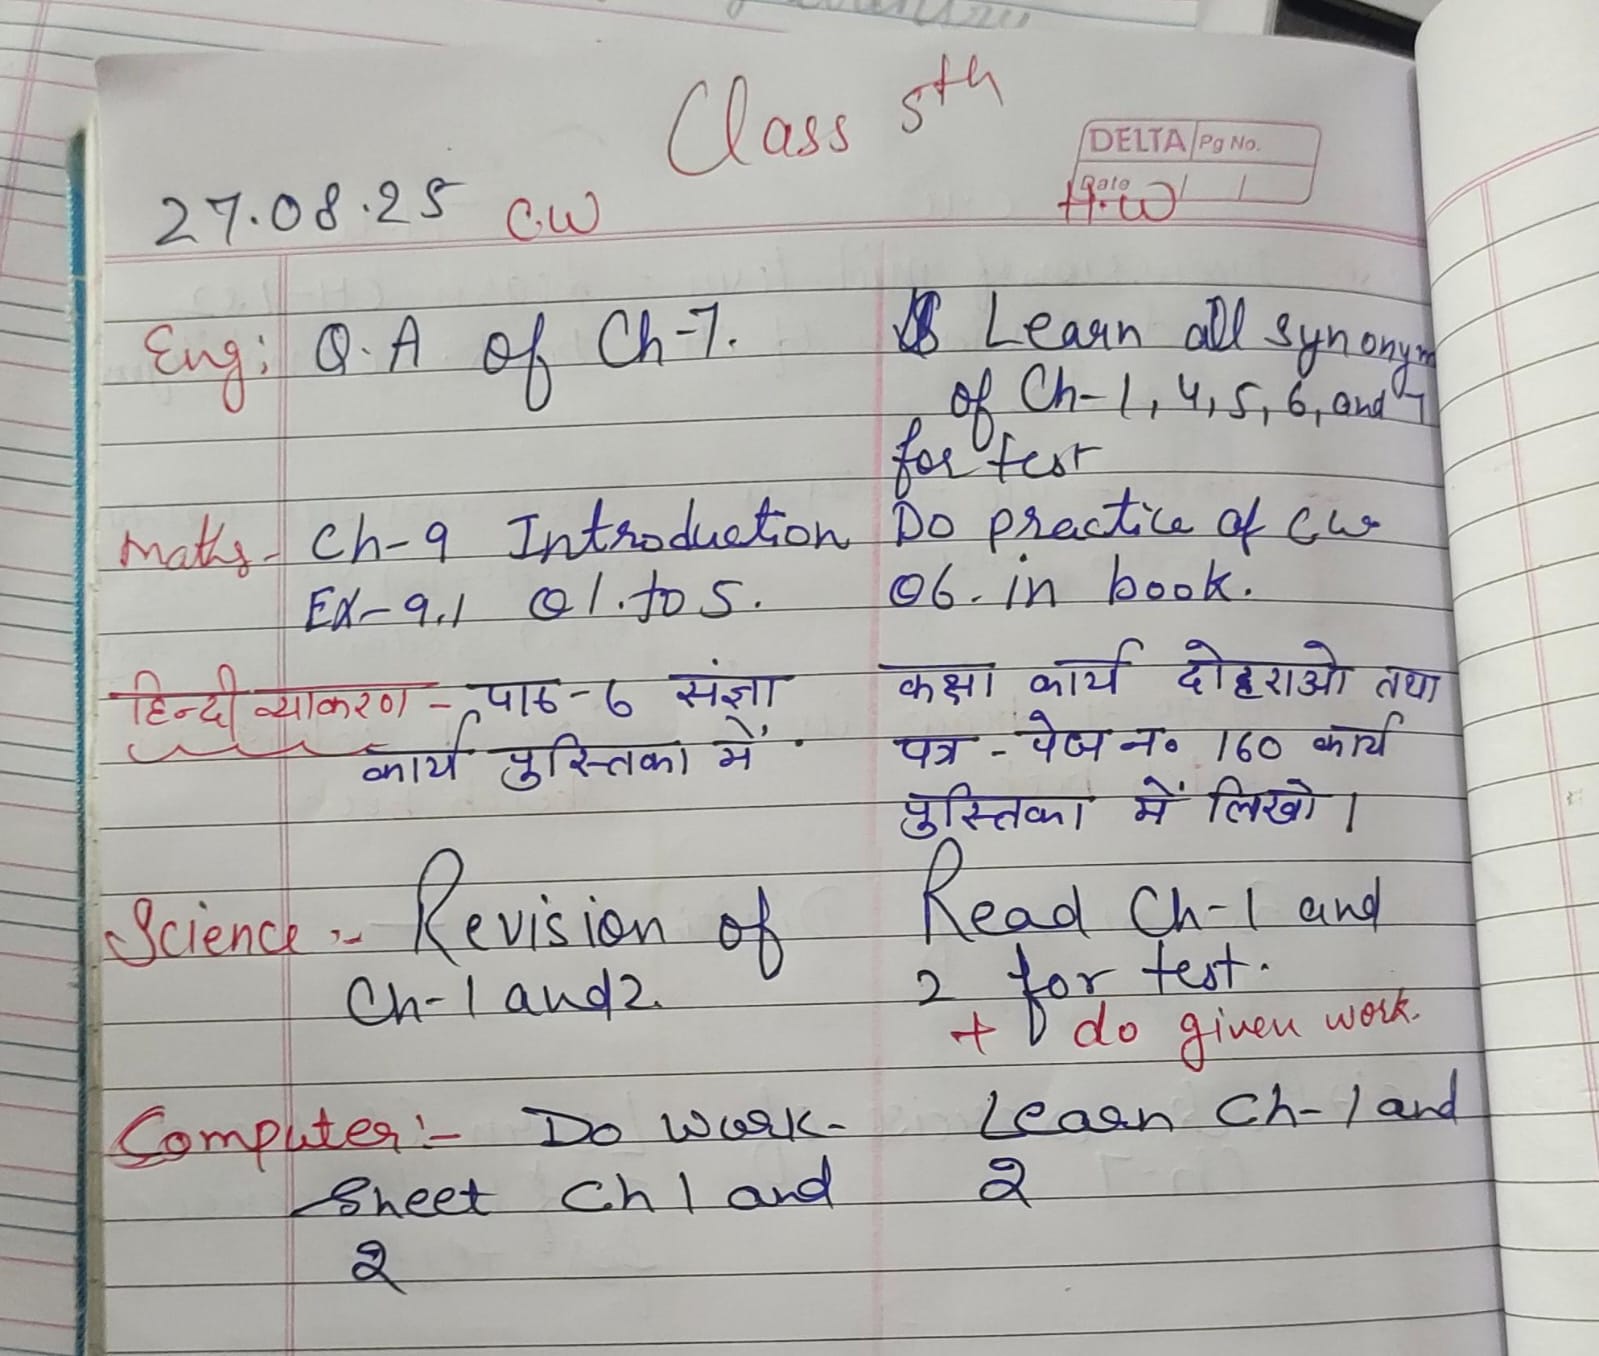 Class 5th
DELTA Pg No.
Date / /
27.08.25 C.W H.W
Eng: Q.A of Ch-7. Learn all synonym
of Ch-1, 4, 5, 6, and 7
for test
Maths- Ch-9 Introduction Do practice of cw
Ex-9.1 Q1. to 5. Q6. in book.
हिन्दी व्याकरण - पाठ-6 संज्ञा कक्षा कार्य दोहराओ तथा
कार्य पुस्तिका में. पत्र - पेज न० 160 कार्य
पुस्तिका में लिखो।
Science :- Revision of Read Ch-1 and
Ch-1 and 2. 2 for test.
+ do given work.
Computer :- Do work- Learn Ch-1 and
sheet Ch 1 and 2
2